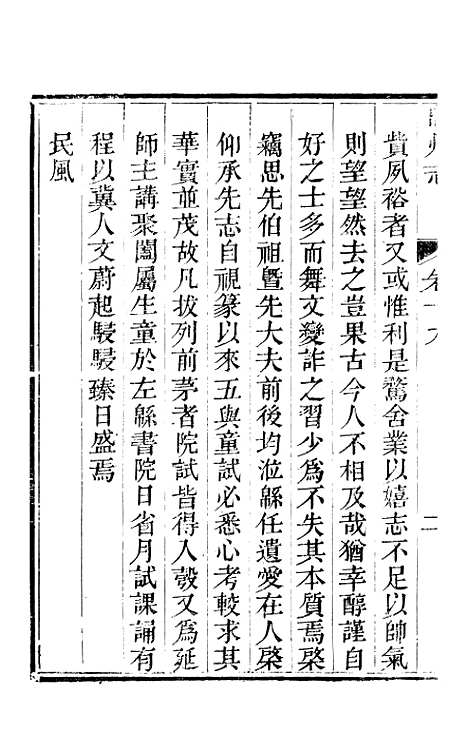 州志
卷十九
二
貲夙裕者又或惟利是騖舍業以嬉志不足以帥氣
則望望然去之豈果古今人不相及哉猶幸醇謹自
好之士多而舞文變詐之習少為不失其本質焉棨
竊思先伯祖暨先大夫前後均涖緜任遺愛在人棨
仰承先志自視篆以來五與童試必悉心考較求其
華實並茂故凡拔列前茅者院試皆得人彀又為延
師主講聚闔屬生童於左緜書院日省月試課誦有
程以冀人文蔚起駸駸臻日盛焉
民風